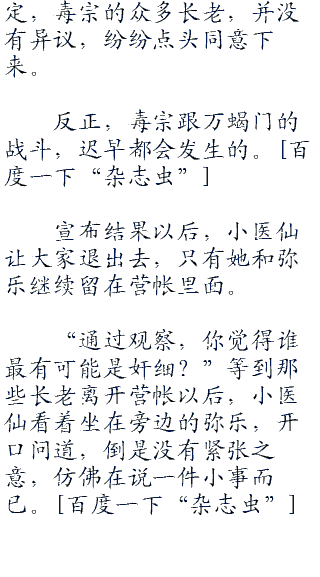 定，毒宗的众多长老，并没
有异议，纷纷点头同意下
来。
反正，毒宗跟万蝎门的
战斗，迟早都会发生的。[百
度一下“杂志虫”]
宣布结果以后，小医仙
让大家退出去，只有她和弥
乐继续留在营帐里面。
“通过观察，你觉得谁
最有可能是奸细？”等到那
些长老离开营帐以后，小医
仙看着坐在旁边的弥乐，开
口问道，倒是没有紧张之
意，仿佛在说一件小事而
已。[百度一下“杂志虫”]